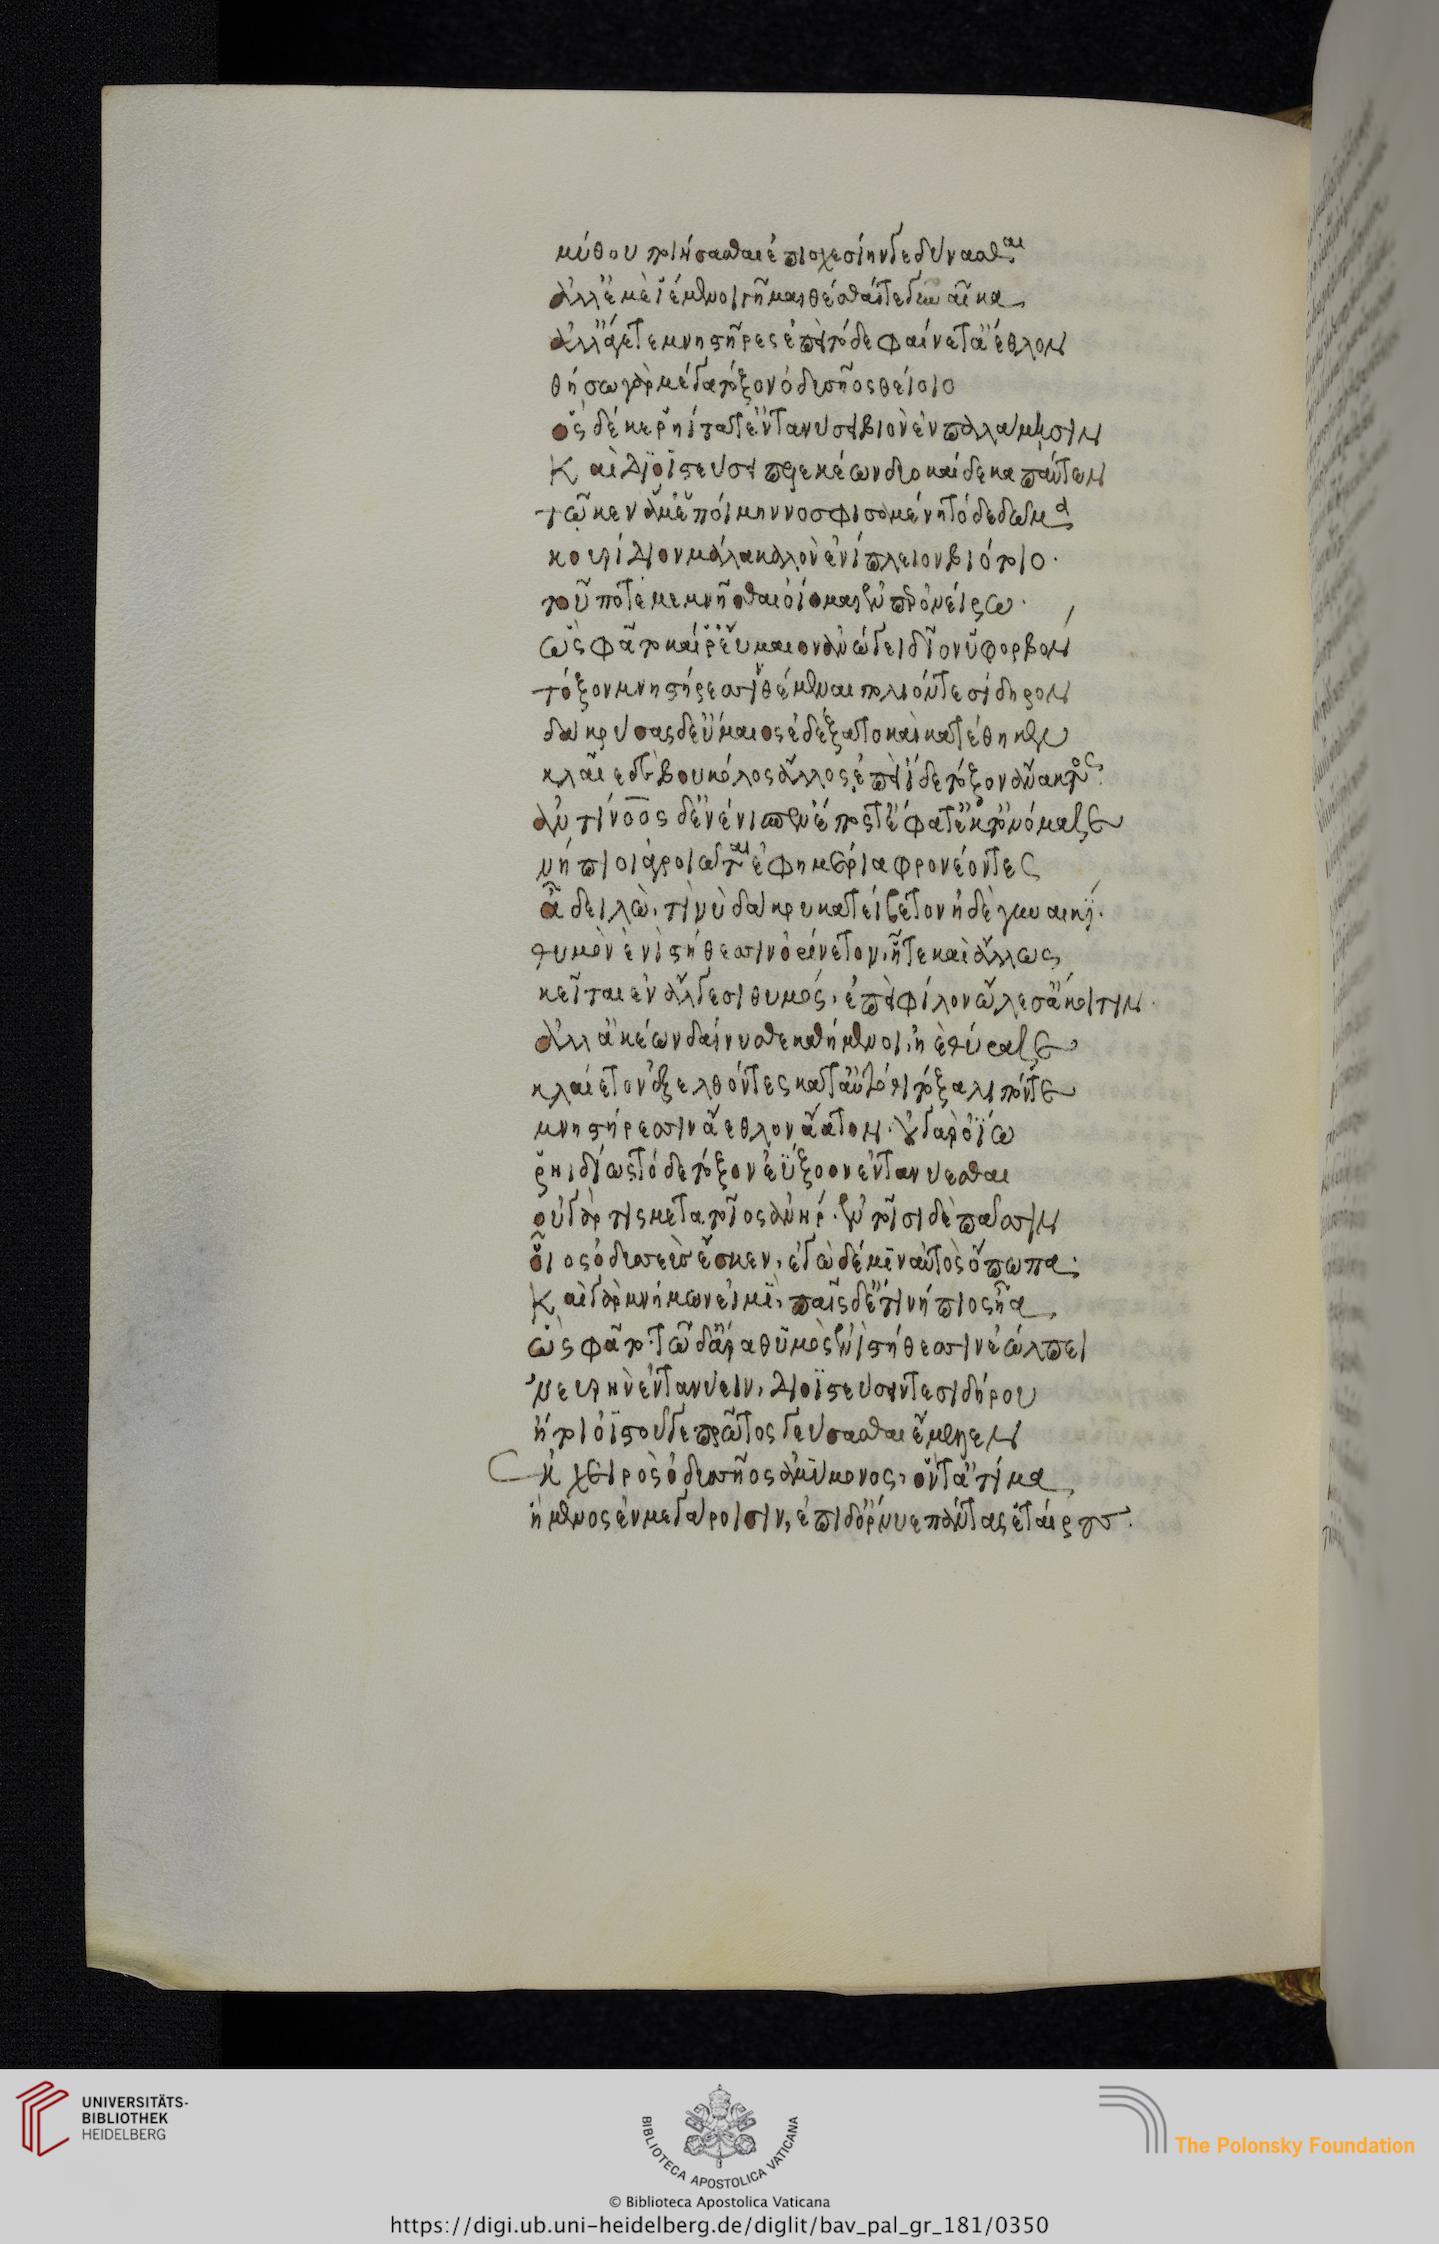 μύθου ποιήσασθαι ἐπισχεσίην γε δύνασθαι
ἀλλ' ἐμὲ ἱέμενοι γῆμαι θέσθαι τε γυναῖκα
ἀλλ' ἄγετε μνηστῆρες ἐπεὶ τόδε φαίνετ' ἄεθλον
θήσω γὰρ μέγα τόξον ὀδυσσῆος θείοιο
ὃς δέ κε ῥηΐτατ' ἐντανύσει βιὸν ἐν παλάμῃσιν
Καὶ διοϊστεύσει πελεκέων δυοκαίδεκα πάντων
τῷ κεν ἅμ' ἑσποίμην νοσφισαμένη τόδε δῶμα
κουρίδιον μάλα καλὸν ἐνίπλειον βιότοιο·
τοῦ ποτὲ μεμνήσθαι ὀΐομαι ἔν περ ὀνείρω·
ὣς φάτο καί ῥ' εὔμαιον ἀνώγει δῖον ὑφορβὸν
τόξον μνηστήρεσσι θέμεναι πολιόν τε σίδηρον
δακρύσας δ' εὔμαιος ἐδέξατο καὶ κατέθηκε
κλαῖε δὲ βουκόλος ἄλλος, ἐπεὶ ἴδε τόξον ἄνακτος.
ἀντίνοος δ' ἐνένιπεν ἔπος τ' ἔφατ' ἔκ τ' ὀνόμαζε
νήπιοι ἀγροιῶται ἐφημέρια φρονέοντες
ἆ δειλὼ, τί νυ δάκρυ κατείβετον ἠδὲ γυναικί.
θυμὸν ἐνὶ στήθεσσιν ὀρίνετον, ᾗ τε καὶ ἄλλως
κεῖται ἐν ἄλγεσι θυμός, ἐπεὶ φίλον ὤλεσ' ἀκοίτην.
ἀλλ' ἀκέων δαίνυσθε καθήμενοι, ἠὲ θύραζε
κλαίετον ἐξελθόντες κατ' αὐτόθι τόξα λιπόντε
μνηστήρεσσιν ἄεθλον ἀάατον· οὐ γὰρ ὀΐω
ῥηιδίως τόδε τόξον ἐΰξοον ἐντανύεσθαι
οὐ γάρ τις μετὰ τοῖος ἀνὴρ. ἐν τοῖσι δὲ πᾶσιν
οἷος ὀδυσσεὺς ἔσκεν, ἐγὼ δέ μιν αὐτὸς ὄπωπα·
Καὶ γὰρ μνήμων εἰμὶ, παῖς δ' ἔτι νήπιος ἦα
ὣς φάτο· τῷ δ' ἄρα θυμὸς ἐνὶ στήθεσσιν ἐώλπει
νευρὴν ἐντανύειν, διοϊστεύσειν τε σιδήρου
ἤτοι ὀϊστοῦ γε πρῶτος γεύσασθαι ἔμελλεν
ἐκ χειρὸς ὀδυσσῆος ἀμύμονος, ὅν τ' ἀτίμα
ἥμενος ἐν μεγάροισιν, ἐπὶ δ' ὄρνυε πάντας ἑταίρους.
UNIVERSITÄTS-
BIBLIOTHEK
HEIDELBERG
BIBLIOTECA APOSTOLICA VATICANA
The Polonsky Foundation
© Biblioteca Apostolica Vaticana
https://digi.ub.uni-heidelberg.de/diglit/bav_pal_gr_181/0350